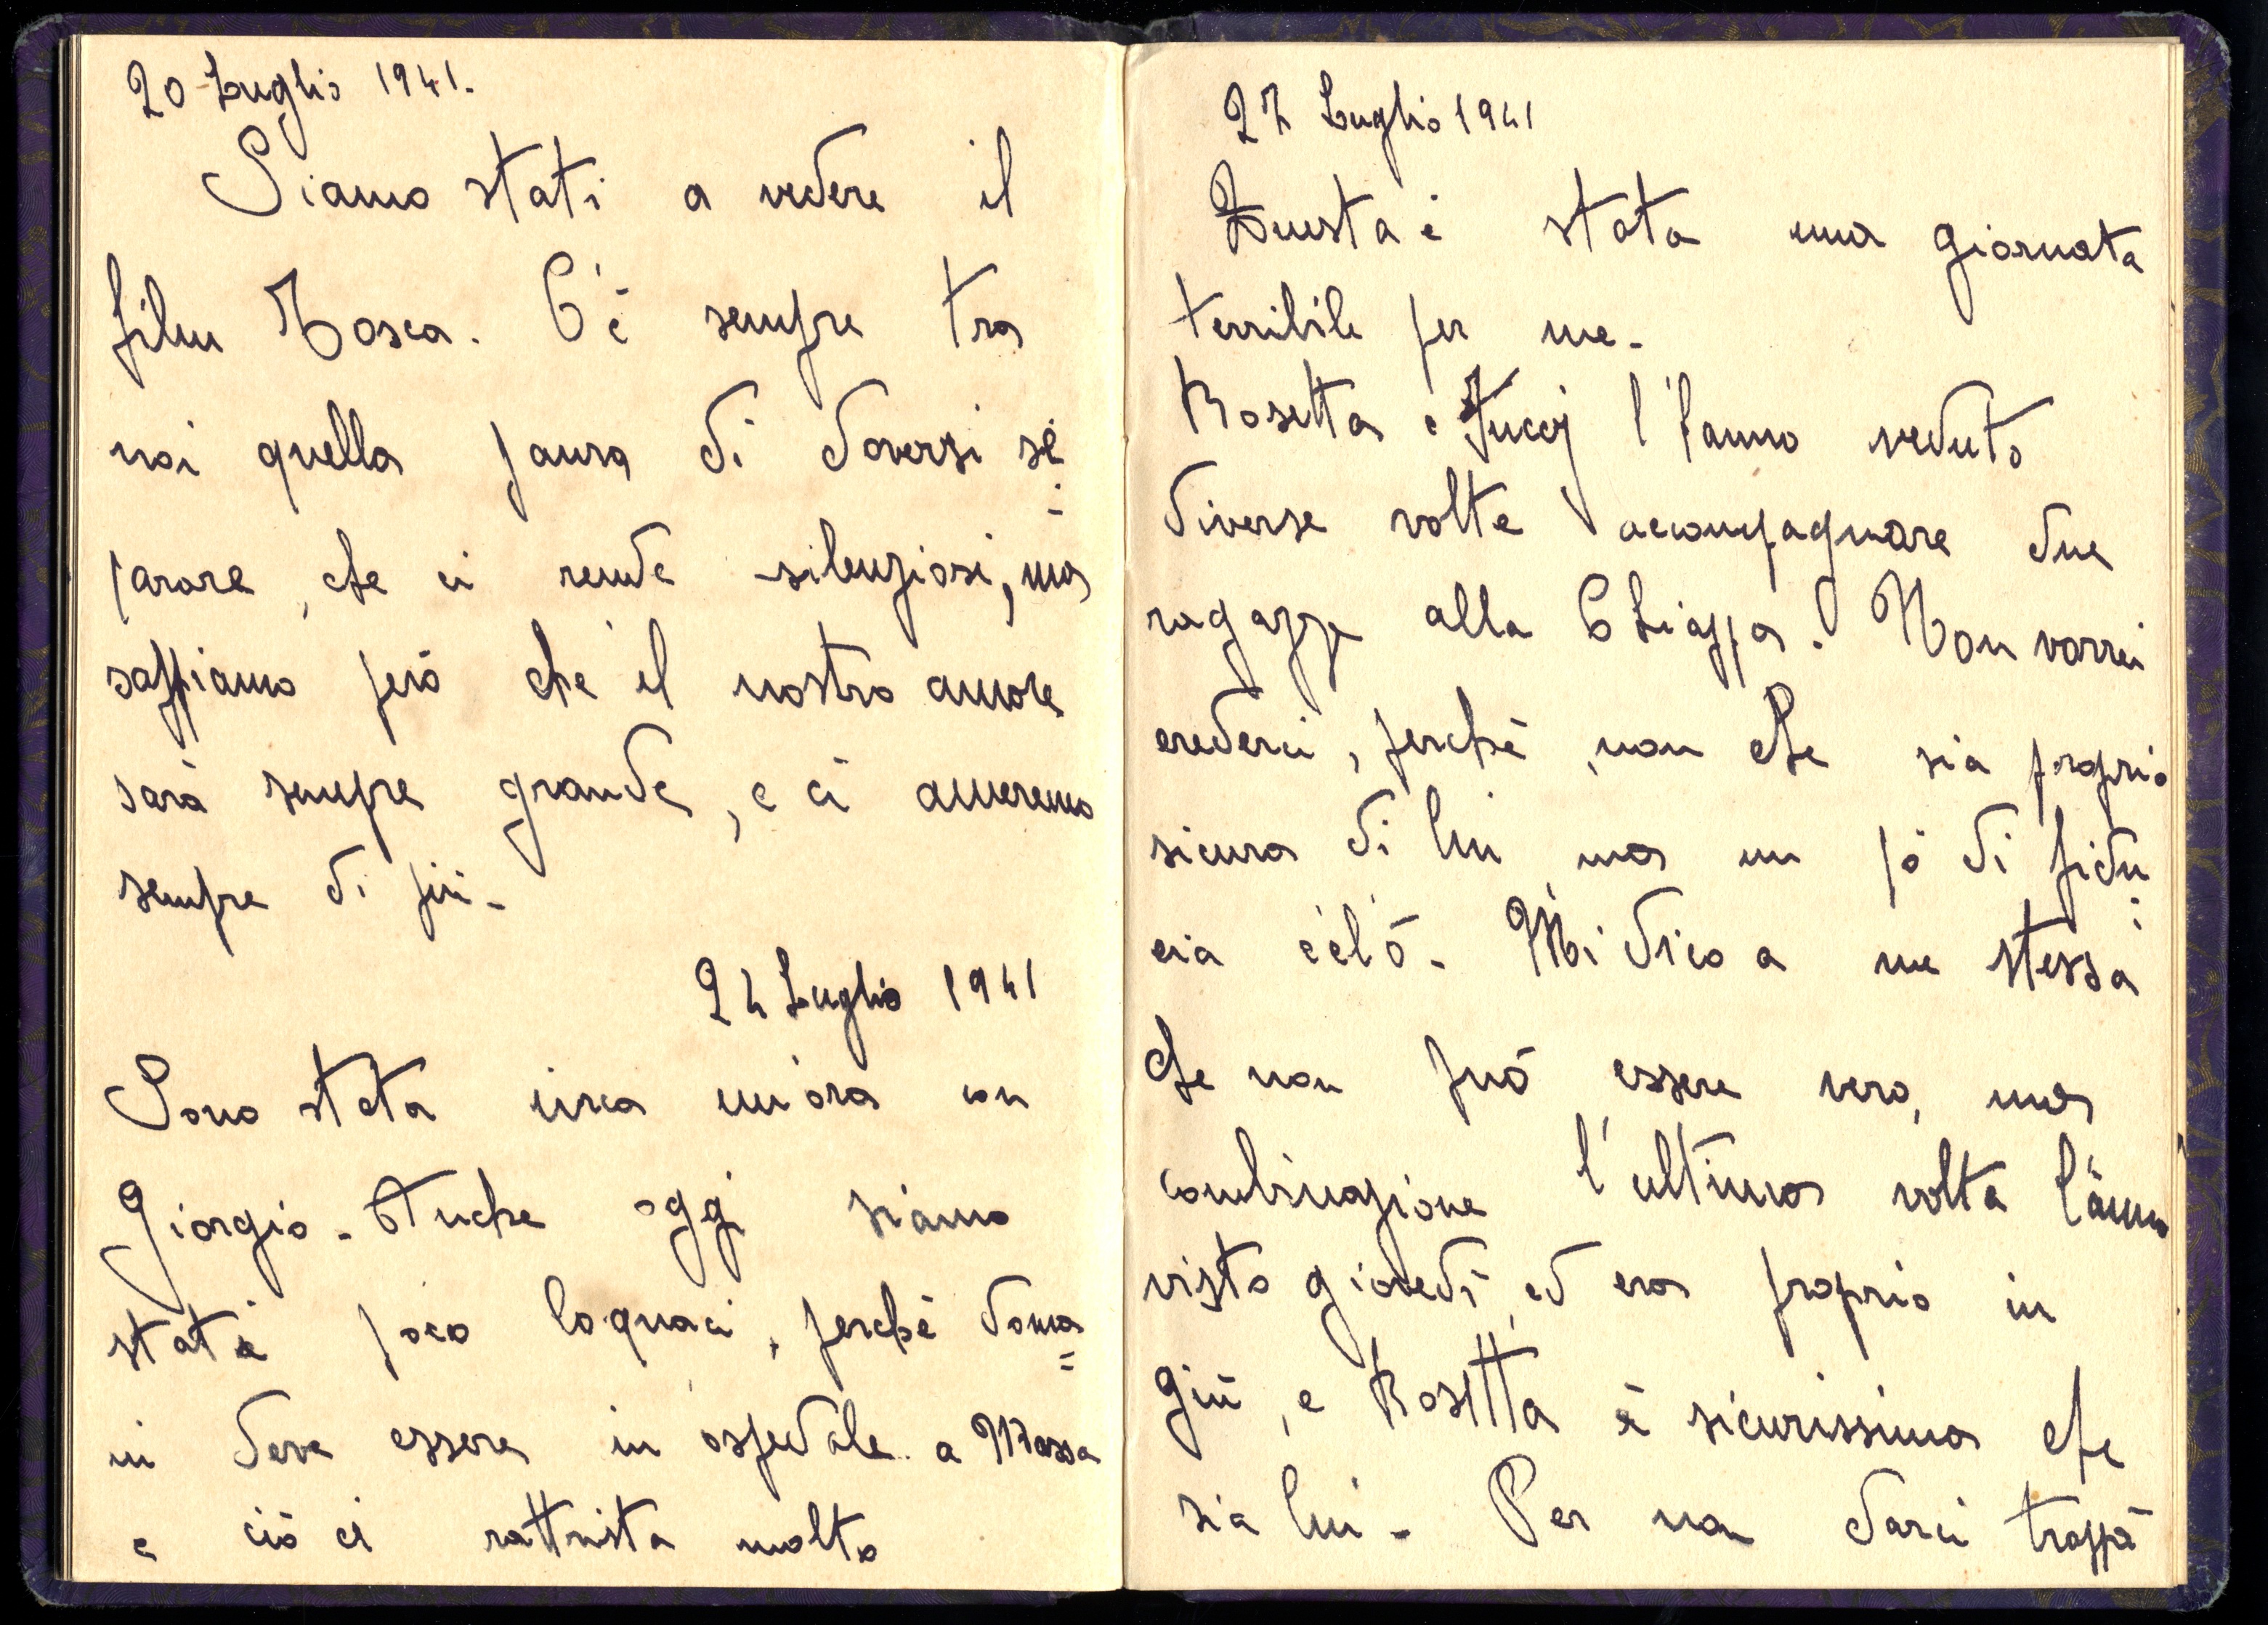 20 Luglio 1941.
Siamo stati a vedere il
film Tosca. C'è sempre tra
noi quella paura di doversi se=
parare, che ci rende silenziosi, ma
sappiamo però che il nostro amore
sarà sempre grande, e ci ameremo
sempre di più-
24 Luglio 1941
Sono stata circa un'ora con
Giorgio. Anche oggi siamo
stati poco loquaci, perchè doma=
ni deve essere in ospedale a Massa
e ciò ci rattrista molto
27 Luglio 1941
Questa è stata una giornata
terribile per me-
Rosetta e l'anno veduto
diverse volte accompagnare due
ragazze alla Chiappa. Non vorrei
crederci, perchè, non che sia proprio
sicura di lui, ma un pò di fidu=
cia c'è l'ò. Mi dico a me stessa
che non può essere vero, ma
combinazione l'ultima volta l'ànno
visto giovedì, ed era proprio in
giù, e Rosetta è sicurissima che
sia lui- Per non darci troppa